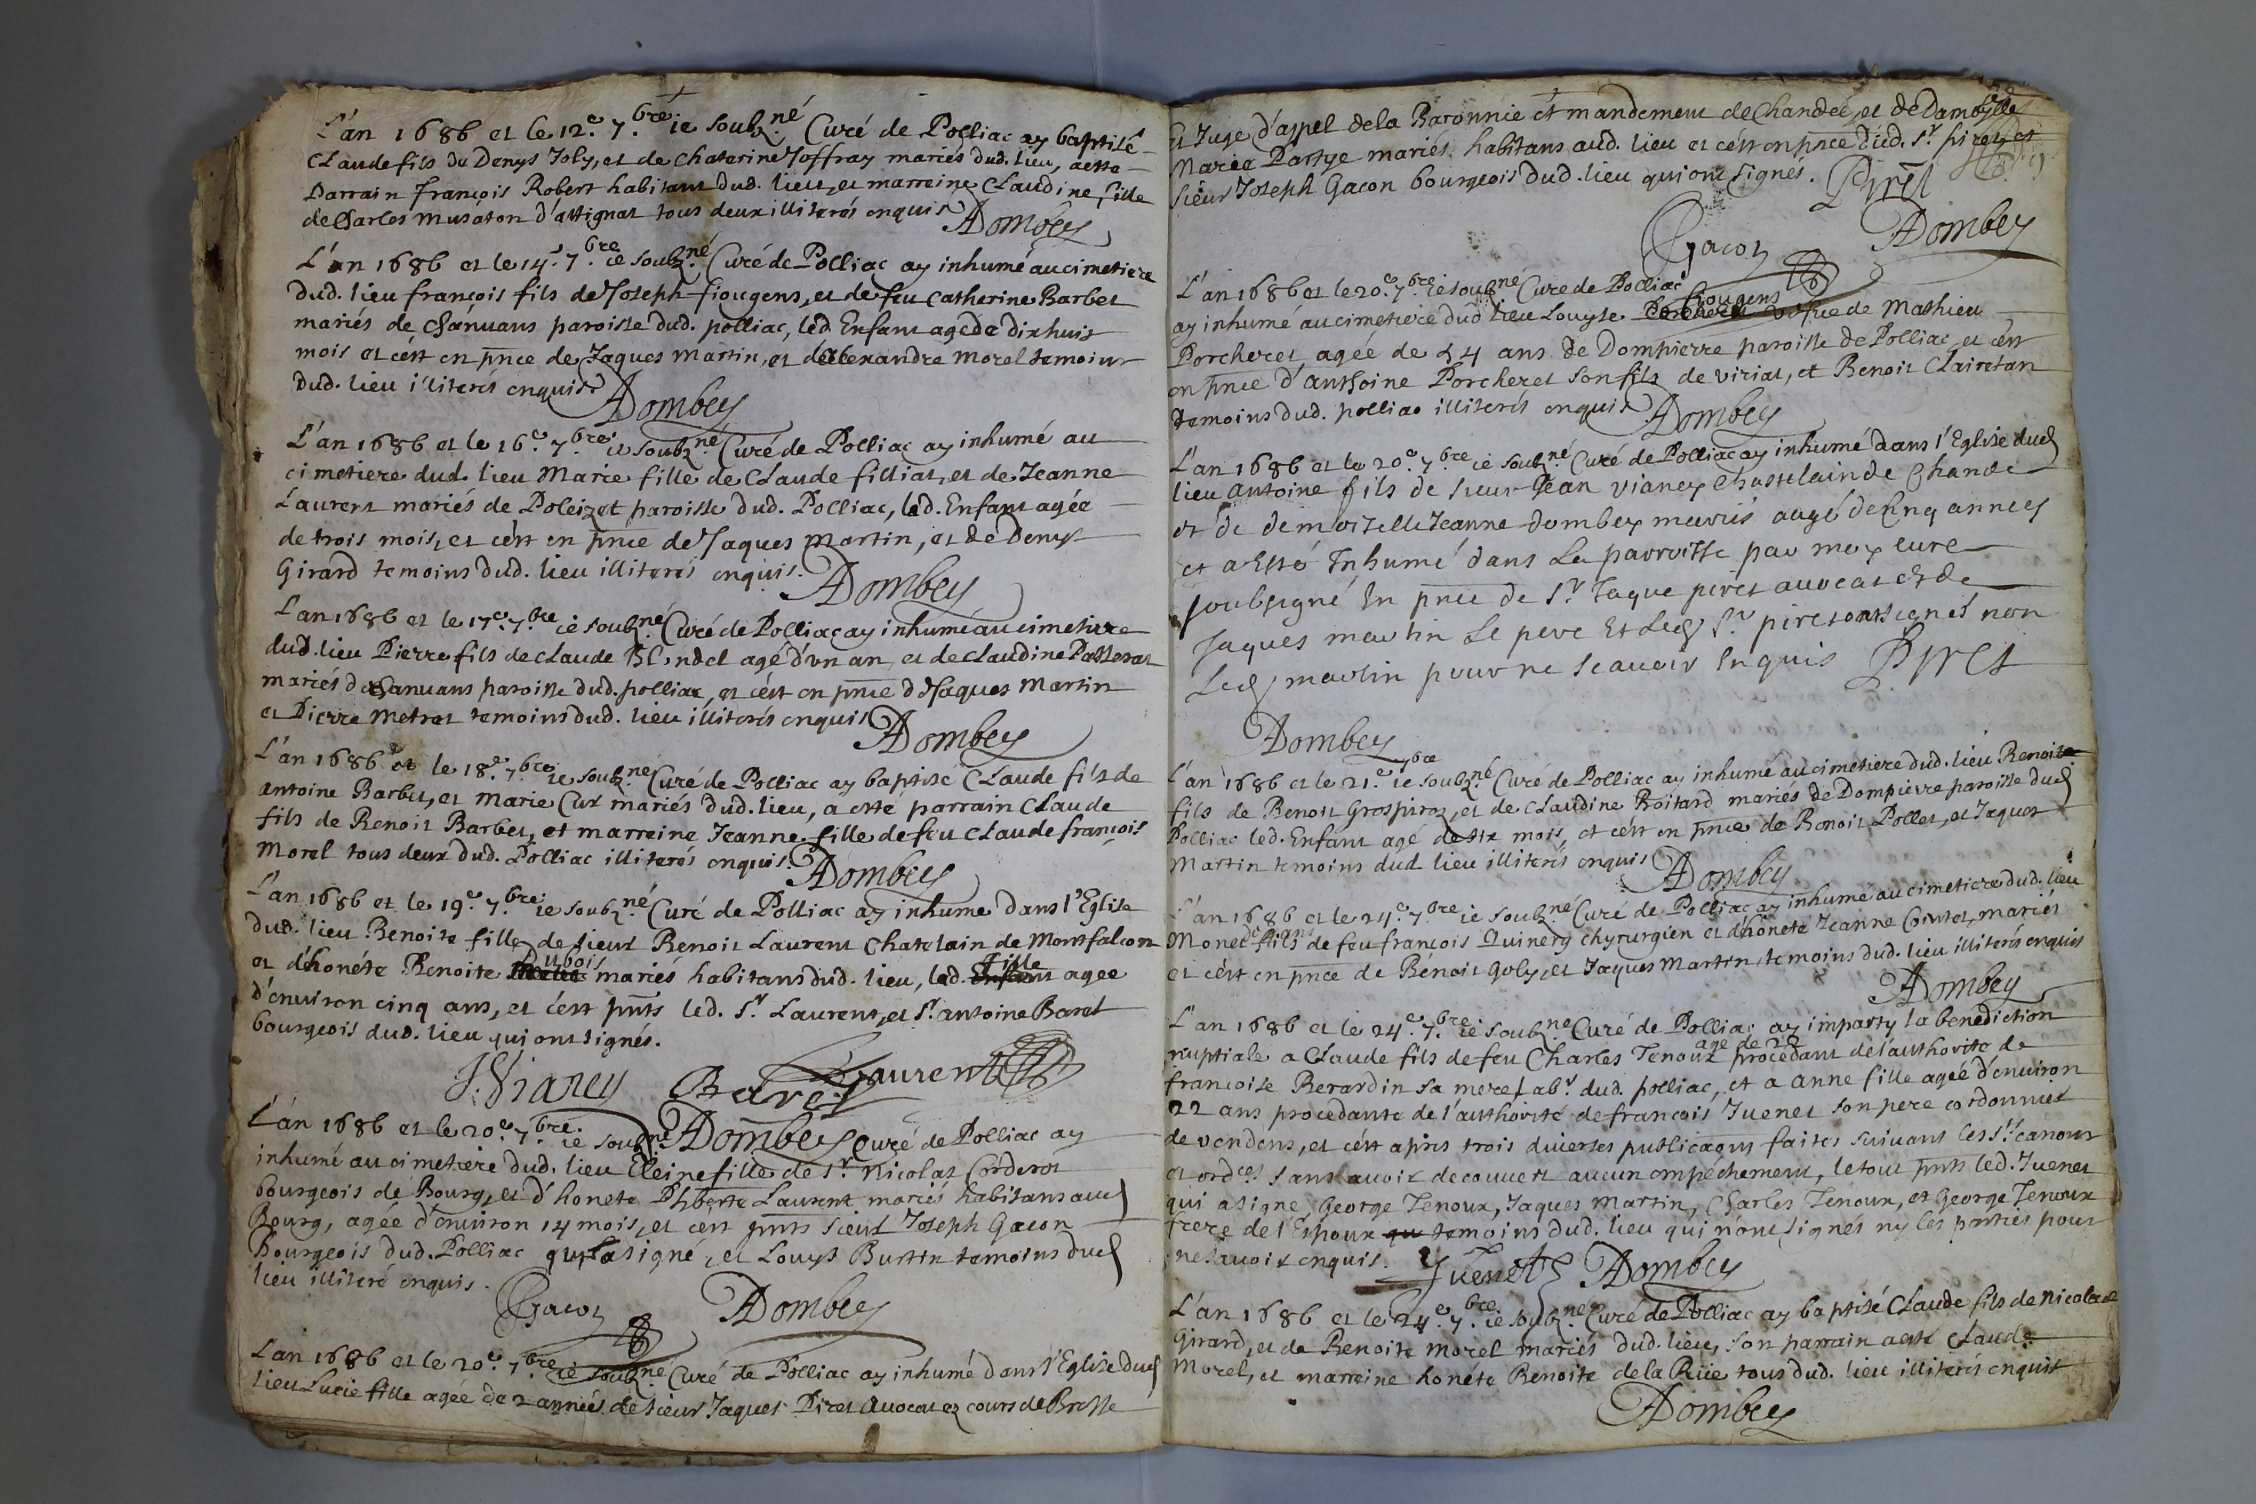 L'an 1686 et le 12.e 7.bre ie soubz.né Curé de Polliac ay baptisé
Claude fils du Denys Joly, et de Chaterine Joffray mariés dud. lieu, aeste
Parrain françois Robert habitant dud. lieu, et marreine Claudine fille
de Charles musaton d'attignat tous deux illiterés enquis ADombey
L'an 1686 et le 14.e 7.bre ie soubz.né Curé de Polliac ay inhumé au cimetiere
dud. lieu françois fils de Joseph fiougens, et de feu Catherine Barbet
mariés de Chânuans paroisse dud. polliac, led. Enfant agé de dixhuit
mois et cést en pnce de Jaques martin, et d'alexandre morel temoins
dud. lieu illiterés enquis ADombey
L'an 1686 et le 16.e 7.bre ie soubz.né Curé de Polliac ay inhumé au
cimetiere dud. lieu Marie fille de Claude filliat, et de Jeanne
Laurent mariés de Poleizet paroisse dud. Polliac, led. Enfant agée
de trois mois, et cést en pnce de Jaques martin, et de Denys
Girard temoins dud. lieu illiterés enquis. ADombey
L'an 1686 et le 17.e 7.bre ie soubz.né Curé de Polliac ay inhumé au cimetiere
dud. lieu Pierre fils de Claude Blondel agé d'un an, et de Claudine Passerat
mariés de Chanuans paroisse dud. polliac, et cést en pnce de Jaques Martin
et Pierre metrat temoins dud. lieu illiterés enquis ADombey
L'an 1686 et le 18.e 7.bre ie soubz.né Curé de Polliac ay baptisé Claude fils de
antoine Barbet, et marie Cur mariés dud. lieu, a esté parrain Claude
fils de Benoit Barbet, et marreine Jeanne fille de feu Claude françois
Morel tous deux dud. Polliac illiterés enquis. ADombey
L'an 1686 et le 19.e 7.bre ie soubz.né Curé de Polliac ay inhumé dans l'Eglise
dud. lieu Benoite fille de sieur Benoit Laurent Chatelain de Montfalcon
et d'honéte Benoite Dubois mariés habitans dud. lieu, lad. fille agée
d'enuiron cinq ans, et cést pnts led. Sr. Laurent, et Sr. antoine Baret
bourgeois dud. lieu qui ont signés.
J. Vianey Baret Laurent
L'an 1686 et le 20.e 7.bre ie soubz.né ADombey Curé de Polliac ay
inhumé au cimetiere dud. lieu Eleine fille de Sr. Nicolas Corderot
bourgeois de Bourg, et d'honete Phiberte Laurent mariés habitans aud
Bourg, agée d'enuiron 14 mois, et cest pnts sieur Joseph Gacon
Bourgeois dud. Polliac qui a signé, et Louys Burtin temoins dud
lieu illiteré enquis.
Gacon ADombey
L'an 1686 et le 20.e 7.bre ie soubz.né Curé de Polliac ay inhumé dans l'Eglise dud
lieu Lucie fille agée de 2 années de sieur Jaques Piret Auocat ez cours de Bresse
Et Juge d'appel de la Baronnie ét mandement de Chandeé, et de
Marie Partye mariés habitans aud. lieu et cést en pnce dud. Sr. piret et
sieur Joseph Gacon bourgeois dud. lieu qui ont signés. Piret
Gacon ADombey
L'an 1686 et le 20.e 7.bre ie soubz.né Curé de Polliac
ay inhumé au cimetiere dud lieu Louyse fiougens vefue de Mathieu
Porcheret, agée de 54 ans de Dompierre paroisse de Polliac, et cést
en pnce d'anthoine Porcheret son fils de viriat, et Benoit Clairetan
temoins dud. polliac illiterés enquis ADombey
L'an 1686 et le 20.e 7.bre ie soubz.né Curé de Polliac ay inhumé dans l'Eglise dud
lieu Antoine fils de sieur Jean vianey Chastelain de Chande
et de demoiselle Jeanne dombey mariés augé de Cinq années
et a Esté Inhumé dans La parroisse par moy Curé
soubsigné En pnce de Sr. Jaque piret auocat et de
Jaques martin Le pere Et Led Sr. piret ont signés non
Led martin pour ne scauoir Enquis Piret
ADombey
L'an 1686 et le 21.e 7bre ie soubz.né Curé de Polliac ay inhumé au cimetiere dud. lieu Benoit
fils de Benoit Grospiroz, et de Claudine Boitard mariés de Dompierre paroisse dud
Polliac led. Enfant agé de six mois, et cést en pnce de Benoit Pollet, et Jaques
Martin temoins dud lieu illiterés enquis ADombey
L'an 1686 et le 24.e 7bre ie soubz.né Curé de Polliac ay inhumé au cimetiere dud. lieu
Monet fils de feu françois Quinery chyrurgien et d'honéte Jeanne Cointet, mariés
et cést en pnce de Bénoit Joly, et Jaques Martin temoins dud. lieu illiterés enquis
ADombey
L'an 1686 et le 24.e 7.bre ie soubz.né Curé de Polliac ay imparty la benediction
nuptiale a Claude fils de feu Charles Tenoux agé de 28 procedant de l'authorité de
françoise Berardin sa mere, dud. polliac, et a anne fille agée d'enuiron
22 ans procedante de l'authorité de françois Juenet son pere cordonnier
de vendens, et cést aprés trois diuerses publicaons faites suiuant les Sts canons
et ordces sans auoir decouuert aucun empéchement, le tout pnts led. Juenet
qui a signé, George Tenoux, Jaques Martin, Charles Tenoux, et George Tenoux
frere de l'Espoux temoins dud. lieu qui n'ont signés ny les parties pour
ne sauoir enquis. Juenet ADombey
L'an 1686 et le 24.e 7.bre ie soubz.né Curé de Polliac ay baptisé Claude fils de nicolas
Girard, et de Benoite morel mariés dud. lieu, son parrain a esté Claude
Morel, et marreine honéte Benoite de la Rüe tous dud. lieu illiterés enquis
ADombey